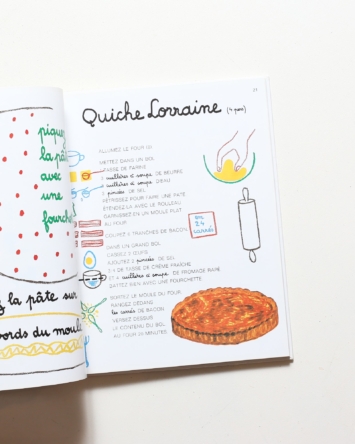 piquez
la pâte
avec
une
fourchette
la pâte sur
bords du moule
Quiche Lorraine (4 pers)
ALLUMEZ LE FOUR
METTEZ DANS UN BOL
TASSE DE FARINE
cuillères à soupe DE BEURRE
cuillères à soupe D'EAU
pincée DE SEL
PÉTRISSEZ POUR FAIRE UNE PÂTE
ÉTENDEZ-LA AVEC LE ROULEAU
GARNISSEZ-EN UN MOULE PLAT
AU FOUR
COUPEZ TRANCHES DE BACON
en
24
carrés
DANS UN GRAND BOL
CASSEZ 2 ŒUFS
AJOUTEZ 2 pincées DE SEL
TASSE DE CRÈME FRAÎCHE
ET cuillères à soupe DE FROMAGE RAPÉ
BATTEZ BIEN AVEC UNE FOURCHETTE
SORTEZ LE MOULE DU FOUR
RANGEZ DEDANS
les carrés DE BACON
VERSEZ DESSUS
LE CONTENU DU BOL
AU FOUR 30 MINUTES